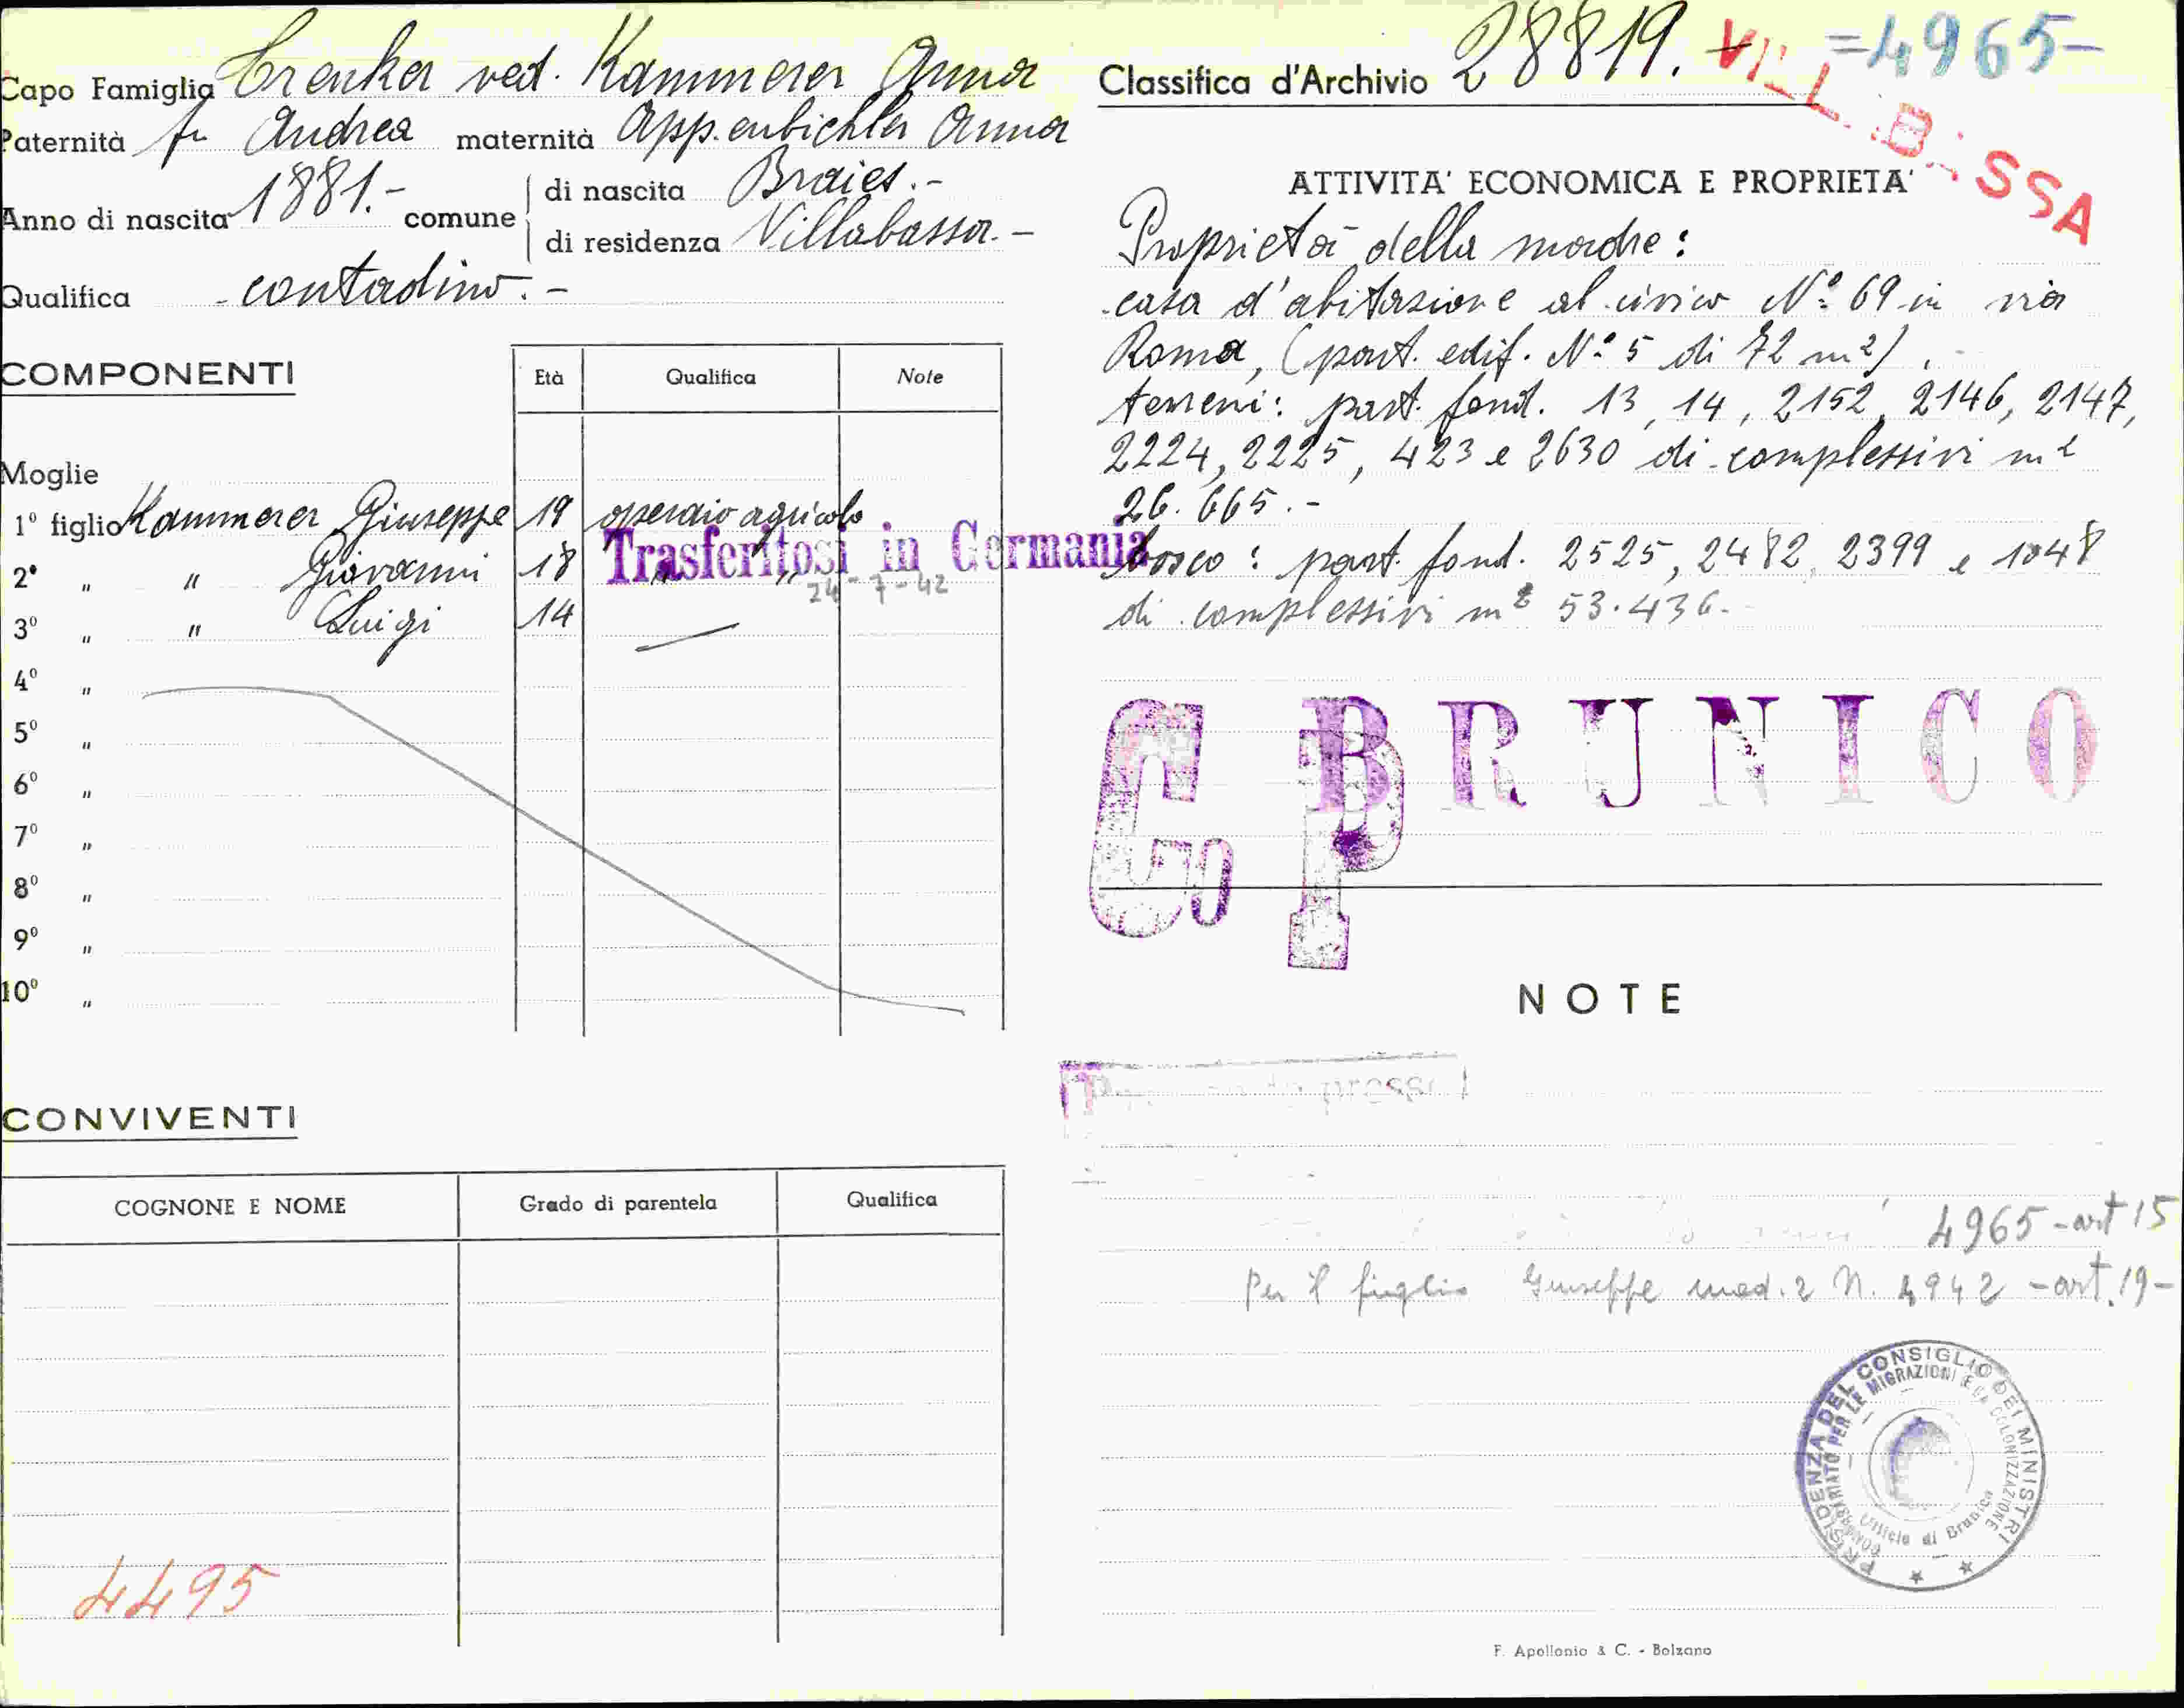 Capo Famiglia Trenker ved. Kammerer Anna
Paternità fu Andrea maternità Appenbichler Anna
Anno di nascita 1881.- comune di nascita Braies.-
di residenza Villabassa.-
Qualifica contadino.-
COMPONENTI
Età Qualifica Note
Moglie
1º figlio Kammerer Giuseppe 19 operaio agricolo
Trasferitosi in Germania
2º " " Giovanni 18 " "
24-7-42
3º " " Luigi 14 —
4º "
5º "
6º "
7º "
8º "
9º "
10º "
CONVIVENTI
COGNONE E NOME Grado di parentela Qualifica
4495
Classifica d'Archivio 28819.- =4965-
VILLABASSA
ATTIVITA' ECONOMICA E PROPRIETA'
Proprietà della madre:
casa d'abitazione al civico Nº 69 in via
Roma, (part. edif. Nº 5 di 72 m²).-
terreni: part. fond. 13, 14, 2152, 2146, 2147,
2224, 2225, 423 e 2630 di complessivi m²
26.665.-
bosco: part. fond. 2525, 2482, 2399 e 1048
di complessivi m² 53.436.-
BRUNICO
NOTE
4965 - art 15
Per il figlio Giuseppe mod. 2 N. 4942 - art. 19-
PRESIDENZA DEL CONSIGLIO DEI MINISTRI
COMMISSARIATO PER LE MIGRAZIONI E LA COLONIZZAZIONE
Ufficio di Brunico
F. Apollonio & C. - Bolzano